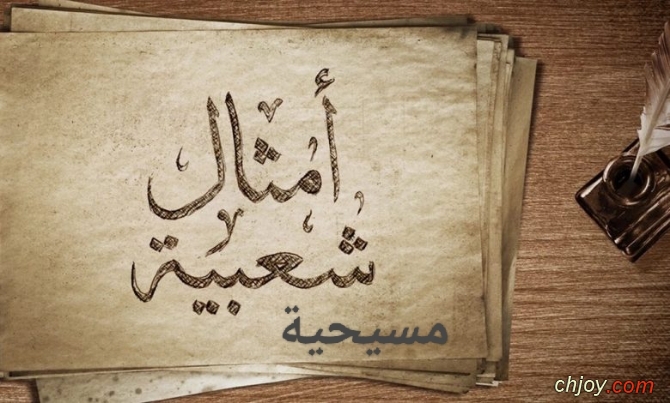 أمثال
شعبية
مسيحية
chjoy.com